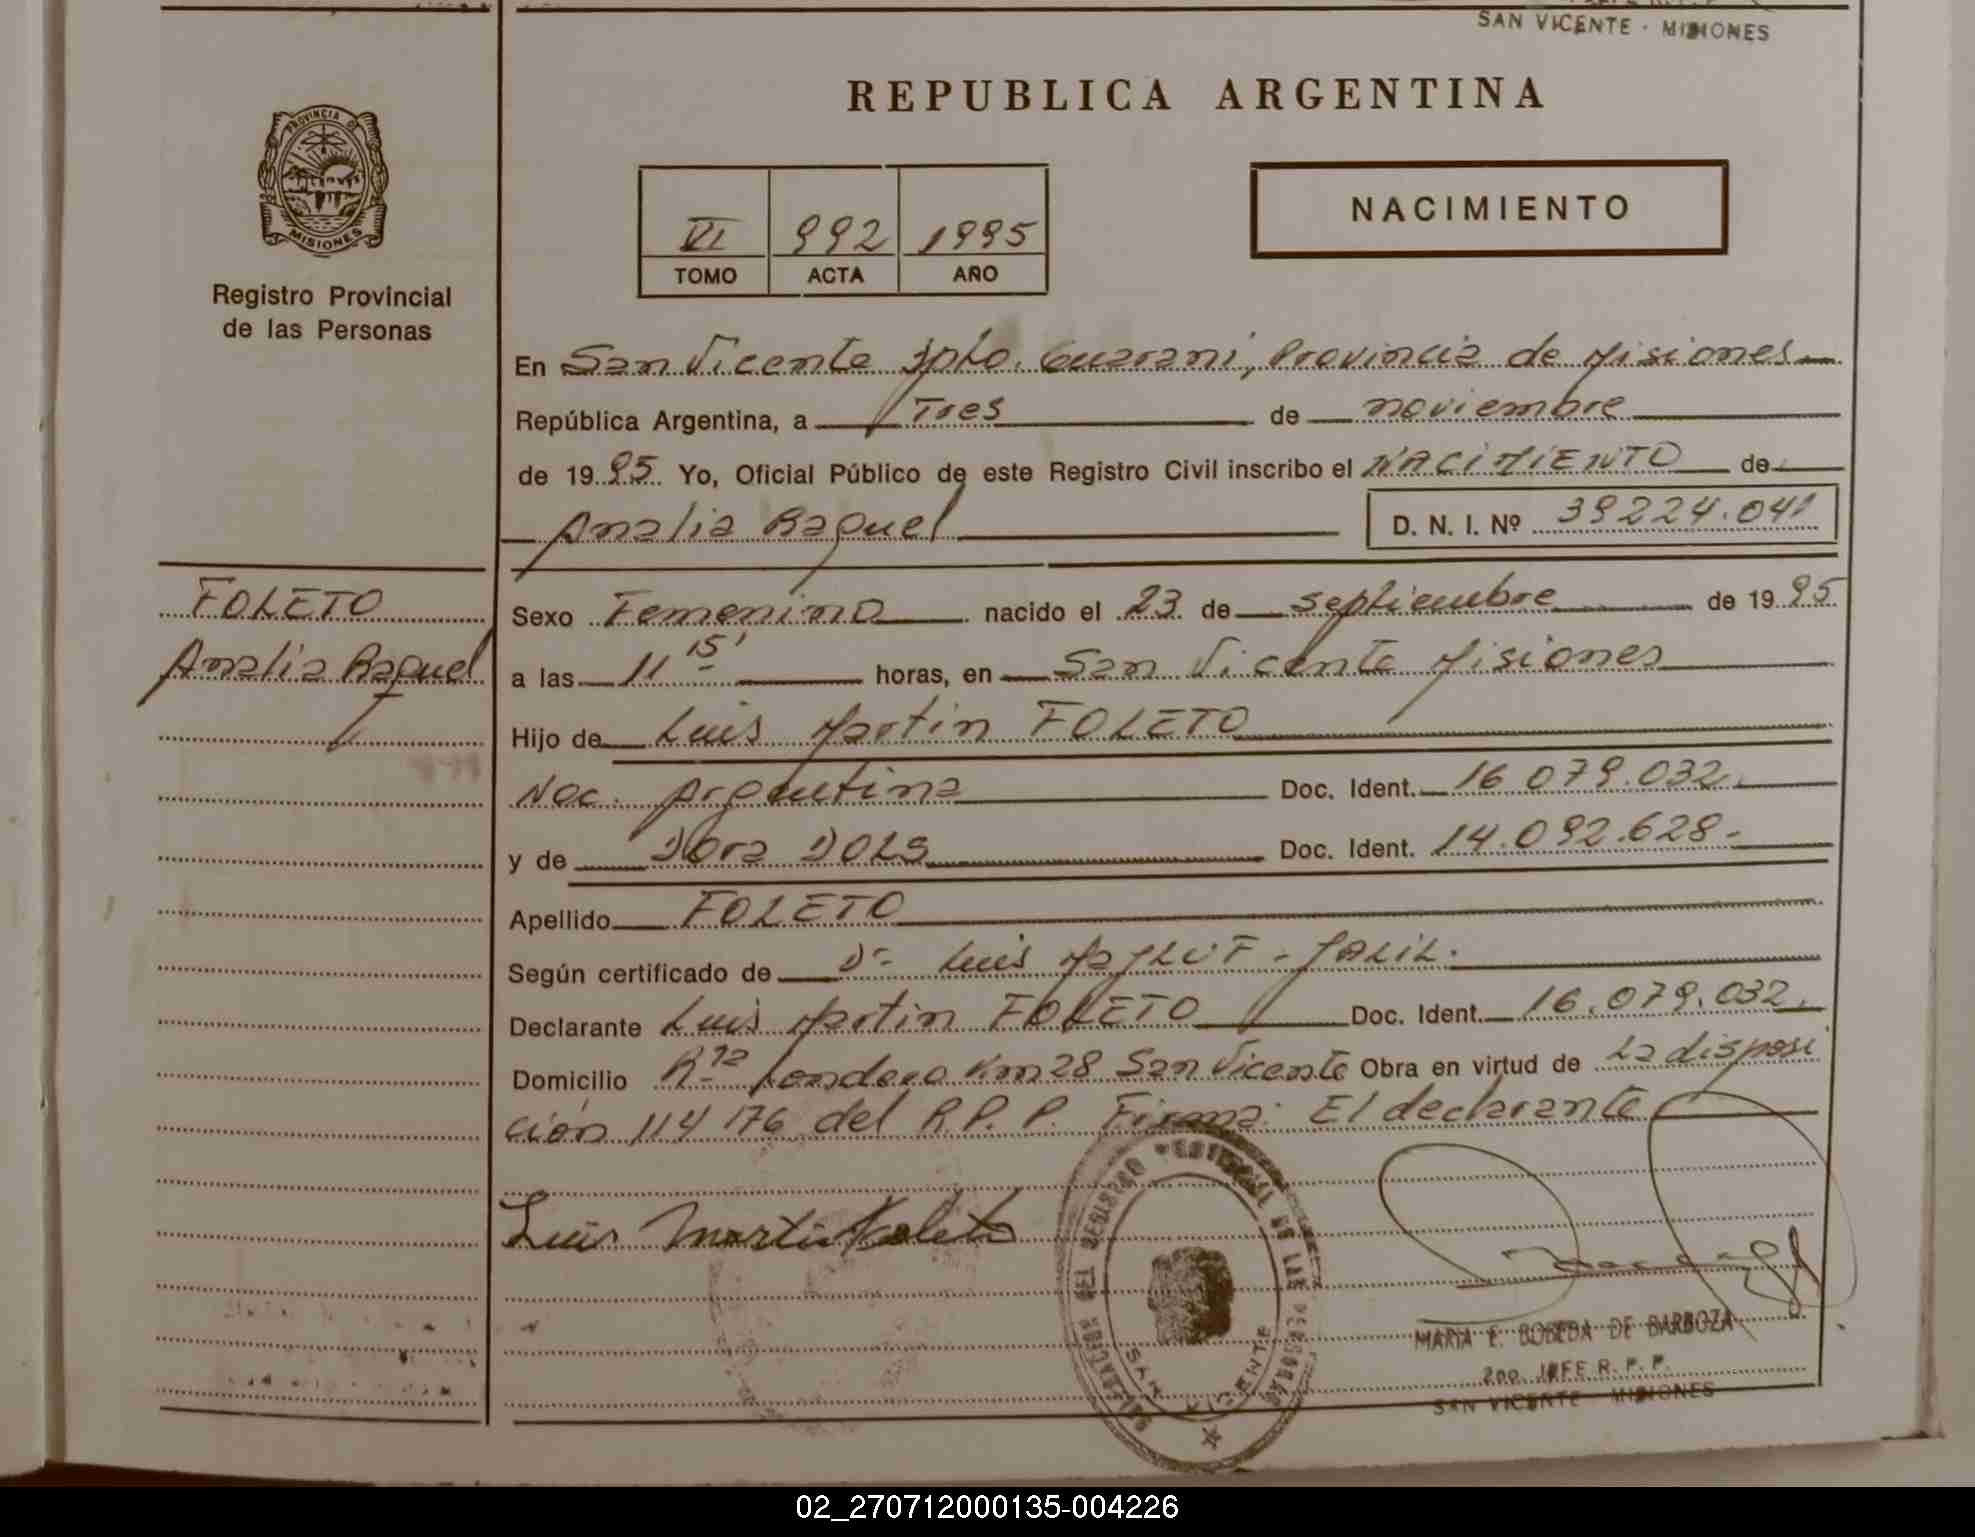 SAN VICENTE - MISIONES
REPUBLICA ARGENTINA
PROVINCIA DE
MISIONES
Registro Provincial
de las Personas
VI 992 1995
TOMO ACTA AÑO
NACIMIENTO
En San Vicente Dpto. Guarani, Provincia de Misiones
República Argentina, a Tres de noviembre
de 1995 Yo, Oficial Público de este Registro Civil inscribo el NACIMIENTO de
Analia Raquel D. N. I. Nº 39224.041
FOLETO
Analia Raquel
Sexo Femenino nacido el 23 de septiembre de 1995
a las 11 15' horas, en San Vicente Misiones
Hijo de Luis Martin FOLETO
Nac. Argentina Doc. Ident. 16.079.032.
y de Dora DOLS Doc. Ident. 14.092.628-
Apellido FOLETO
Según certificado de Dr Luis - JALIL.
Declarante Luis Martin FOLETO Doc. Ident. 16.079.032.
Domicilio Rta Londero Km 28 San Vicente Obra en virtud de La disposi
ción 114/76 del R.P.P. Firma: El declarante
Luis Martin Foleto
DELEGACION DEL REGISTRO PROVINCIAL DE LAS PERSONAS
SAN VICENTE
MARIA E. BOBEDA DE BARBOZA
2do. JEFE R. P. P.
SAN VICENTE MISIONES
02_270712000135-004226